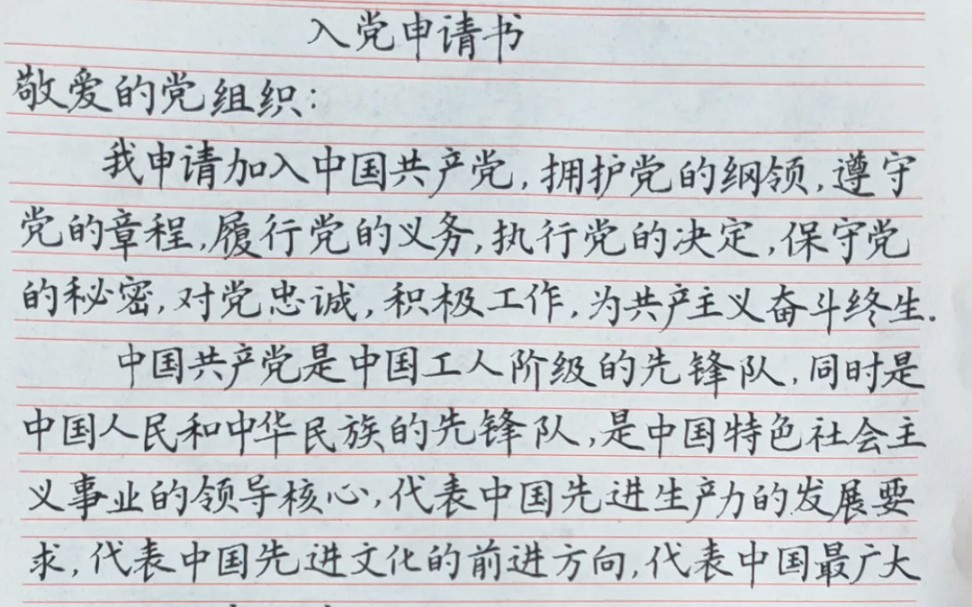 入党申请书
敬爱的党组织:
我申请加入中国共产党,拥护党的纲领,遵守
党的章程,履行党的义务,执行党的决定,保守党
的秘密,对党忠诚,积极工作,为共产主义奋斗终生.
中国共产党是中国工人阶级的先锋队,同时是
中国人民和中华民族的先锋队,是中国特色社会主
义事业的领导核心,代表中国先进生产力的发展要
求,代表中国先进文化的前进方向,代表中国最广大